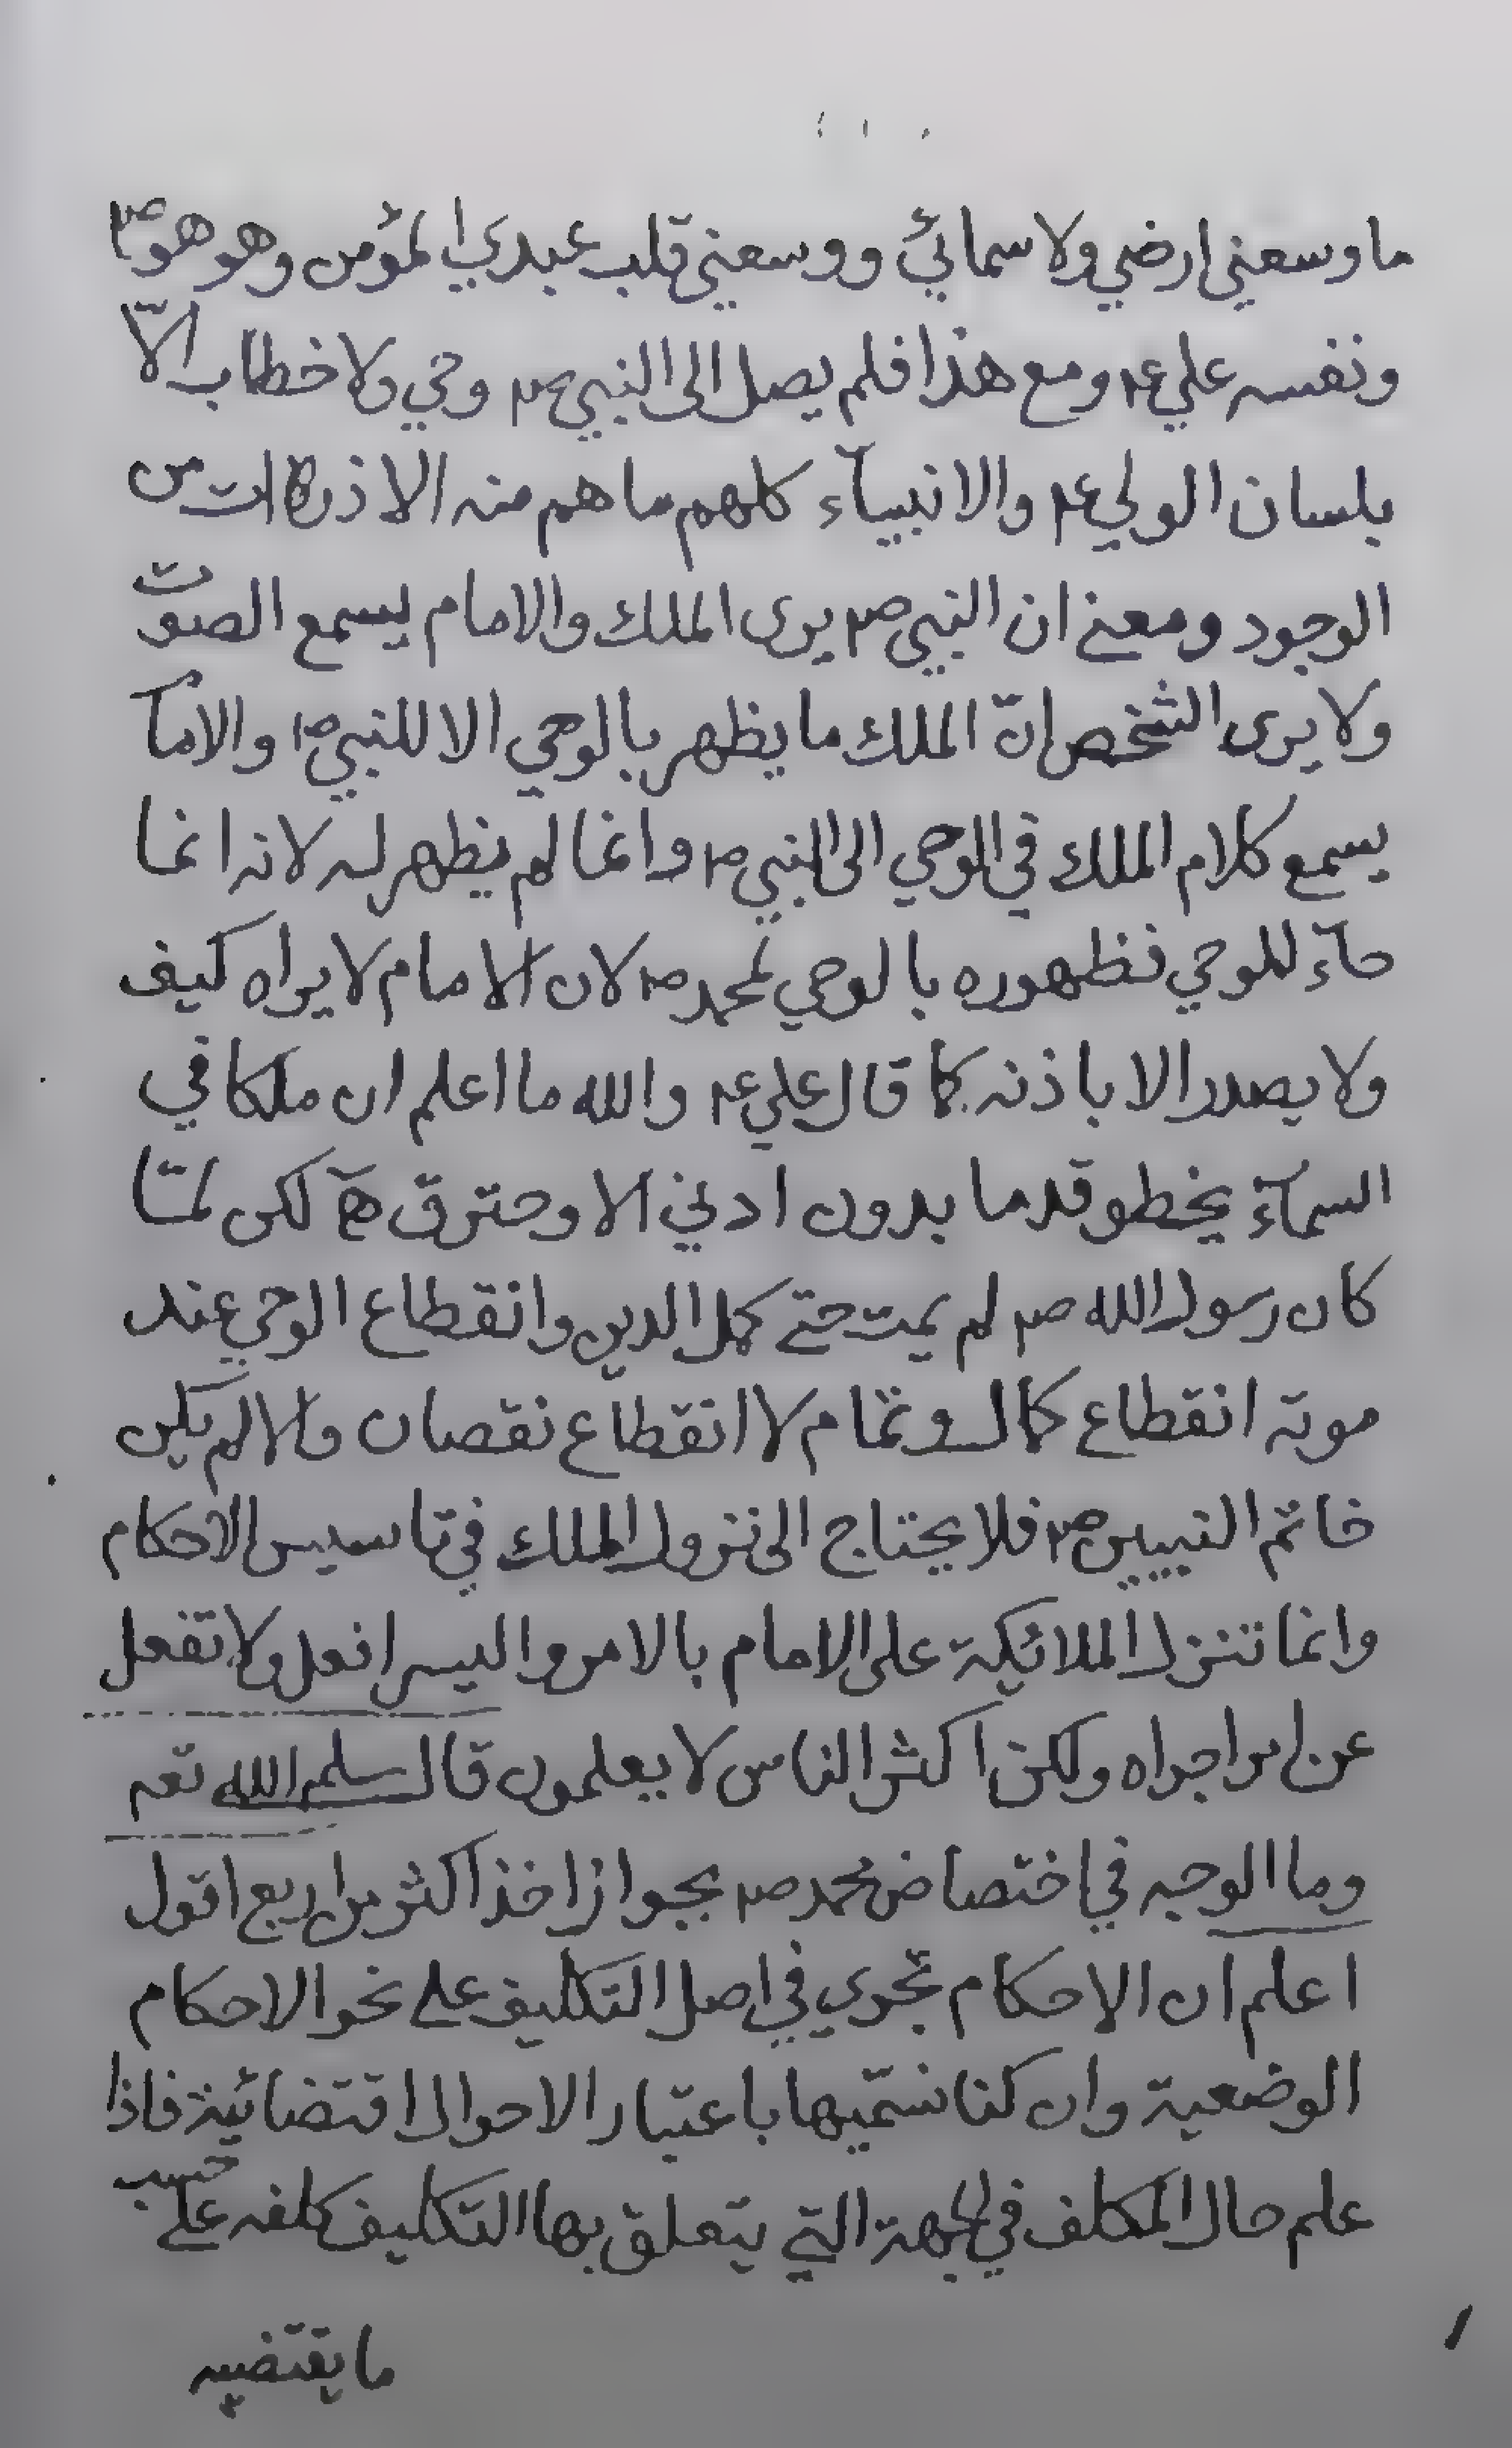 ما وسعني ارضي ولا سمائي ووسعني قلب عبدي المؤمن وهو هو ص
ونفسه علي ع ومع هذا فلم يصل الى النبي ص وحي ولا خطاب الّا
بلسان الولي ع والانبيآء كلهم ما هم منه الا ذرات من
الوجود ومعنى ان النبي ص يرى الملك والامام يسمع الصوت
ولا يرى الشخص انّ الملك ما يظهر بالوحي الا للنبي ص والاما
يسمع كلام الملك في الوحي الى النبي ص وانما لم يظهر له لانه انما
جآء للوحي فظهوره بالوحي لمحمد ص لان الامام لا يراه كيف
ولا يصدر الا باذنه كما قال علي ع والله ما اعلم ان ملكا في
السمآء يخطو قدما بدون اذني الا وحترق هـ لكن لمّا
كان رسول الله ص لم يمت حتى كمل الدين وانقطاع الوحي عند
موته انقطاع كمال وتمام لا انقطاع نقصان والا لم يكن
خاتم النبيين ص فلا يحتاج الى نزول الملك في تاسيس الاحكام
وانما تنزل الملائكة على الامام بالامر واليسر افعل ولا تفعل
عن امر اجراه ولكن اكثر الناس لا يعلمون قال سلمه الله تعه
وما الوجه في اختصاص محمد ص بجواز اخذ اكثر من اربع اقول
اعلم ان الاحكام تجري في اصل التكليف على نحو الاحكام
الوضعية وان كنا نسمّيها باعتبار الاحوال اقتضائية فاذا
علم حال المكلف في الجهة التي يتعلق بها التكليف كلفه على حسب
ما يقتضيه